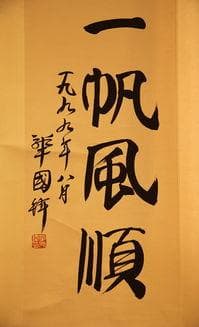 一帆風順
一九九九年八月
華國鋒